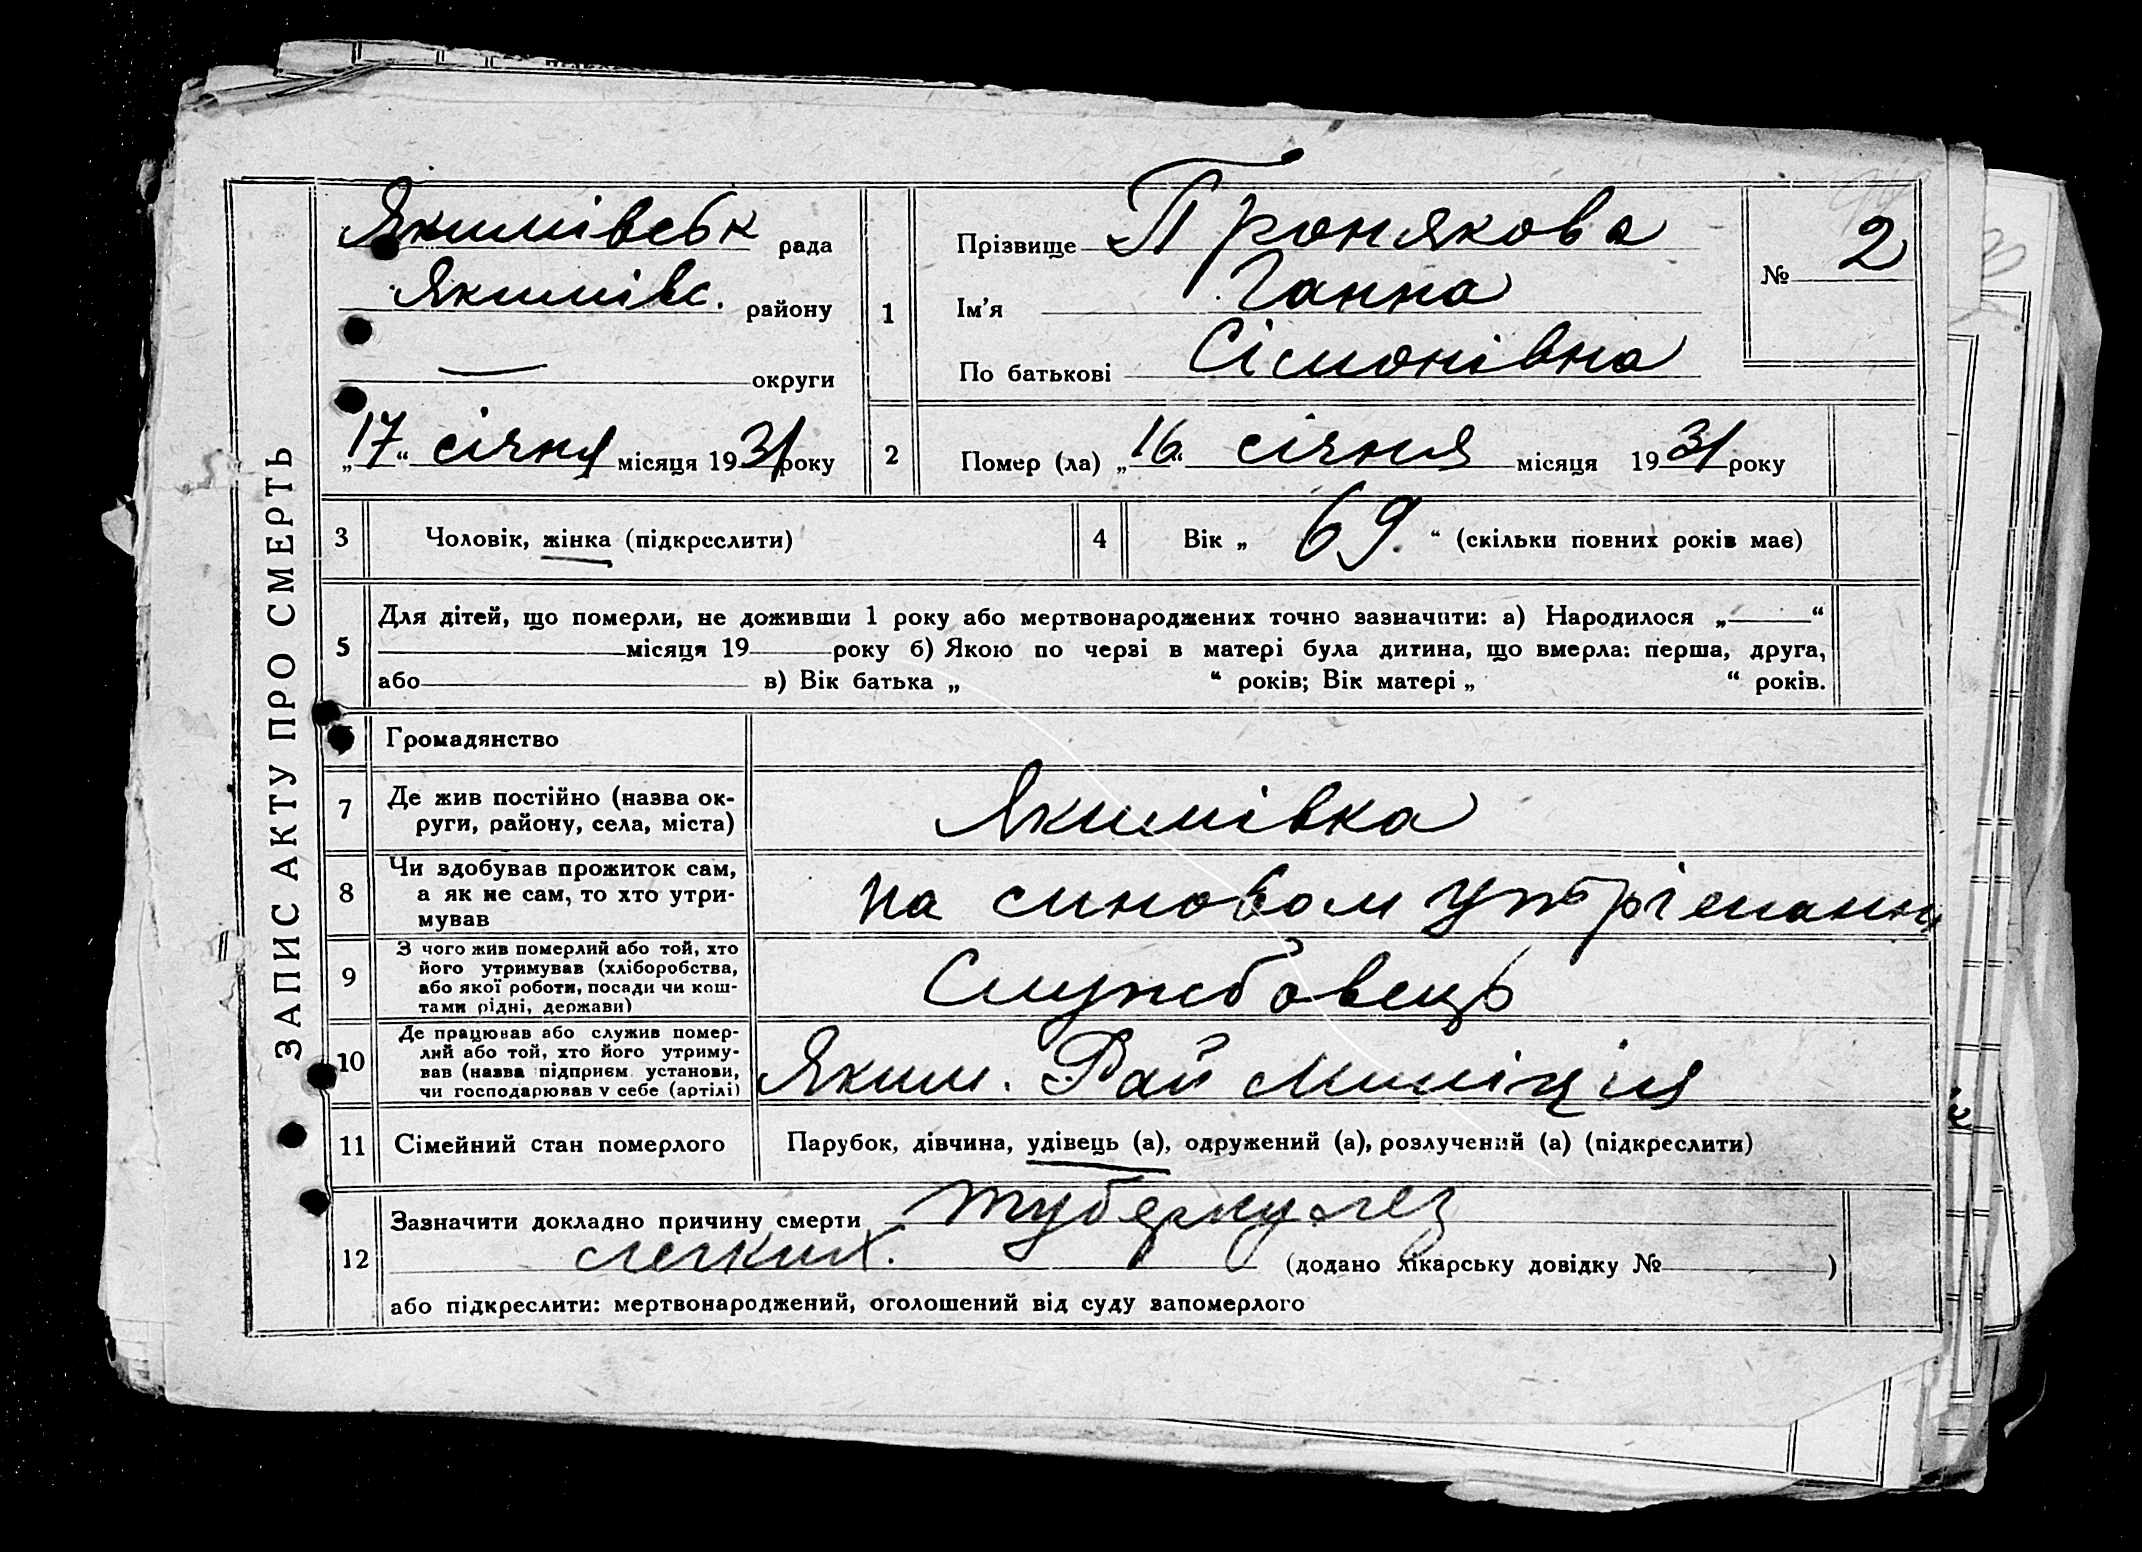 ЗАПИС АКТУ ПРО СМЕРТЬ
Якимівськ рада
Якимівс. району
— округи
„17“ січня місяця 1931 року
1
Прізвище Пронякова
Ім'я Ганна
По батькові Сімонівна
№ 2
2 Помер (ла) „16“ січня місяця 1931 року
3 Чоловік, жінка (підкреслити)
4 Вік „69.“ (скільки повних років має)
5 Для дітей, що померли, не доживши 1 року або мертвонароджених точно зазначити: а) Народилося „ “
місяця 19 року б) Якою по черзі в матері була дитина, що вмерла: перша, друга,
або в) Вік батька „ “ років; Вік матері „ “ років.
Громадянство
7 Де жив постійно (назва ок-
руги, району, села, міста)
Якимівка
8 Чи здобував прожиток сам,
а як не сам, то хто утри-
мував
на синовом утріманни
9 З чого жив померлий або той, хто
його утримував (хліборобства,
або якої роботи, посади чи кош-
тами рідні, держави)
Службовець
10 Де працював або служив помер-
лий або той, хто його утриму-
вав (назва підприєм. установи,
чи господарював у себе (артілі)
Яким. Рай Міліція
11 Сімейний стан померлого
Парубок, дівчина, удівець (а), одружений (а), розлучений (а) (підкреслити)
12 Зазначити докладно причину смерти туберкулез
легких.
(додано лікарську довідку № )
або підкреслити: мертвонароджений, оголошений від суду запомерлого